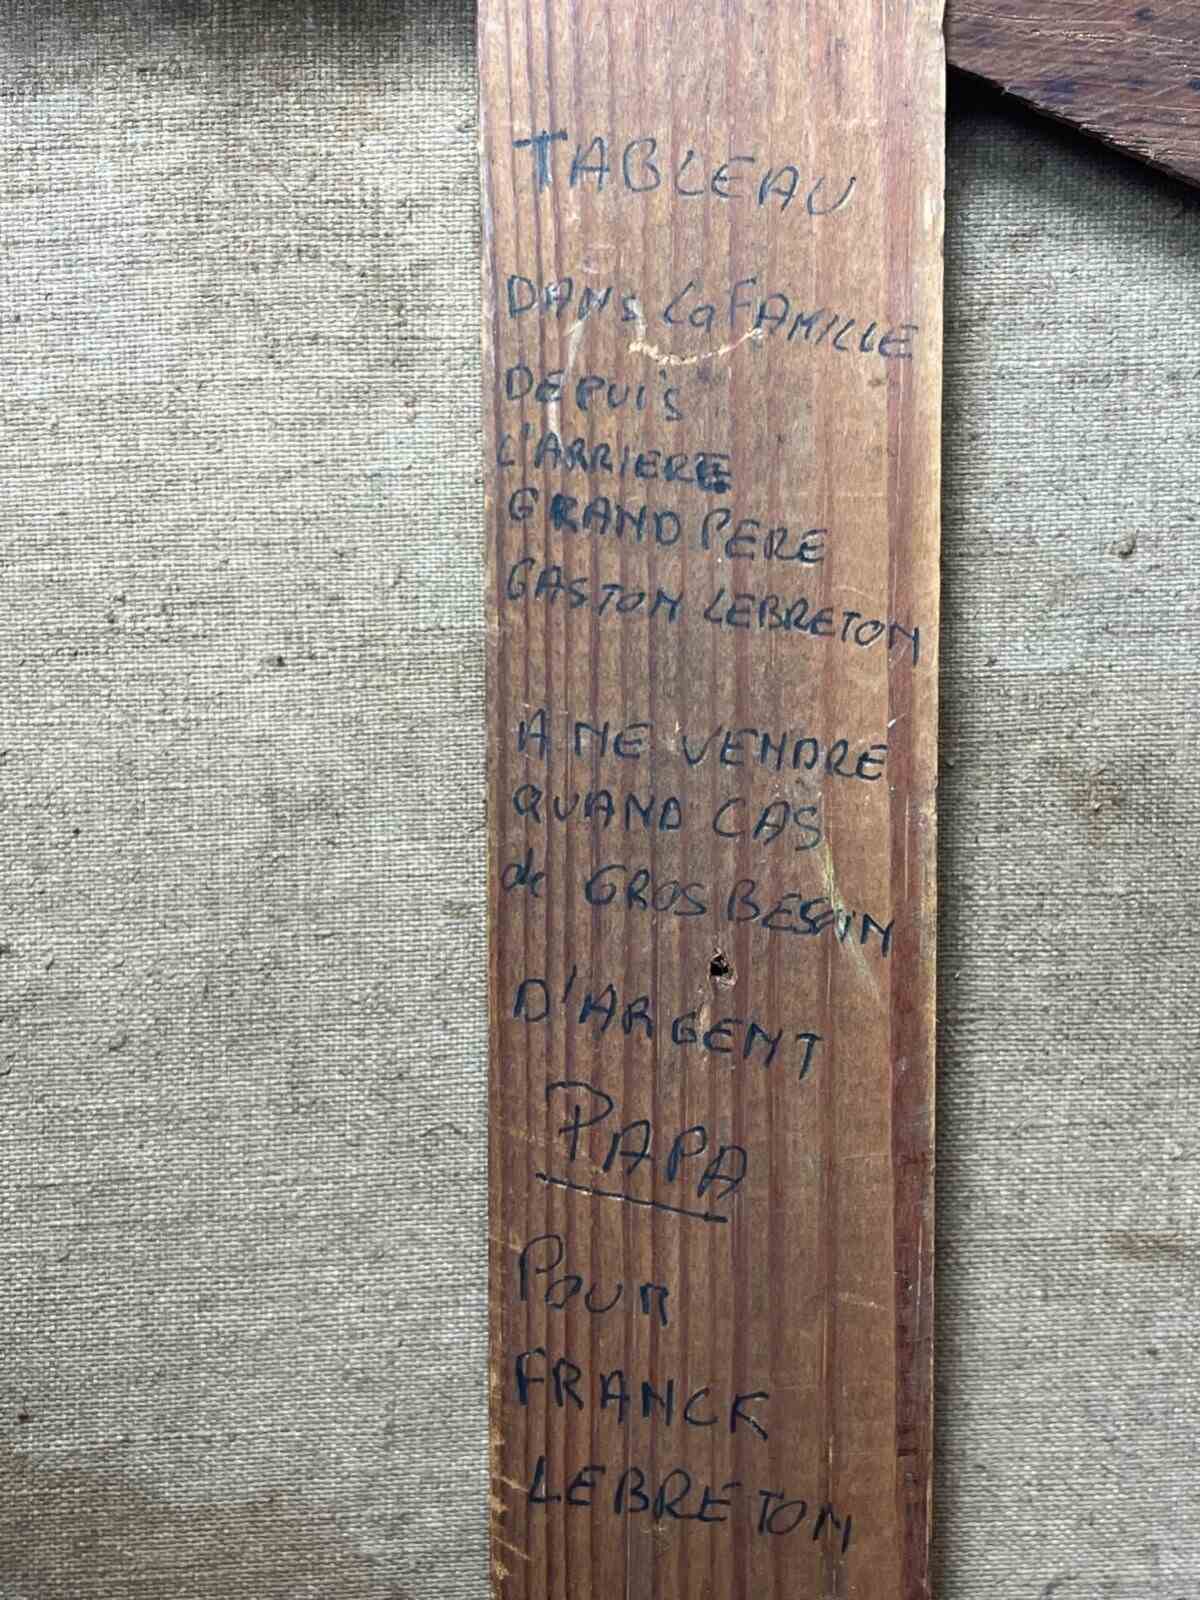 TABLEAU
DANS La FAMILLE
DEPUIS
L'ARRIERE
GRAND PERE
GASTON LEBRETON
A NE VENDRE
QUAND CAS
de GROS BESOIN
D'ARGENT
PAPA
POUR
FRANCK
LEBRETON